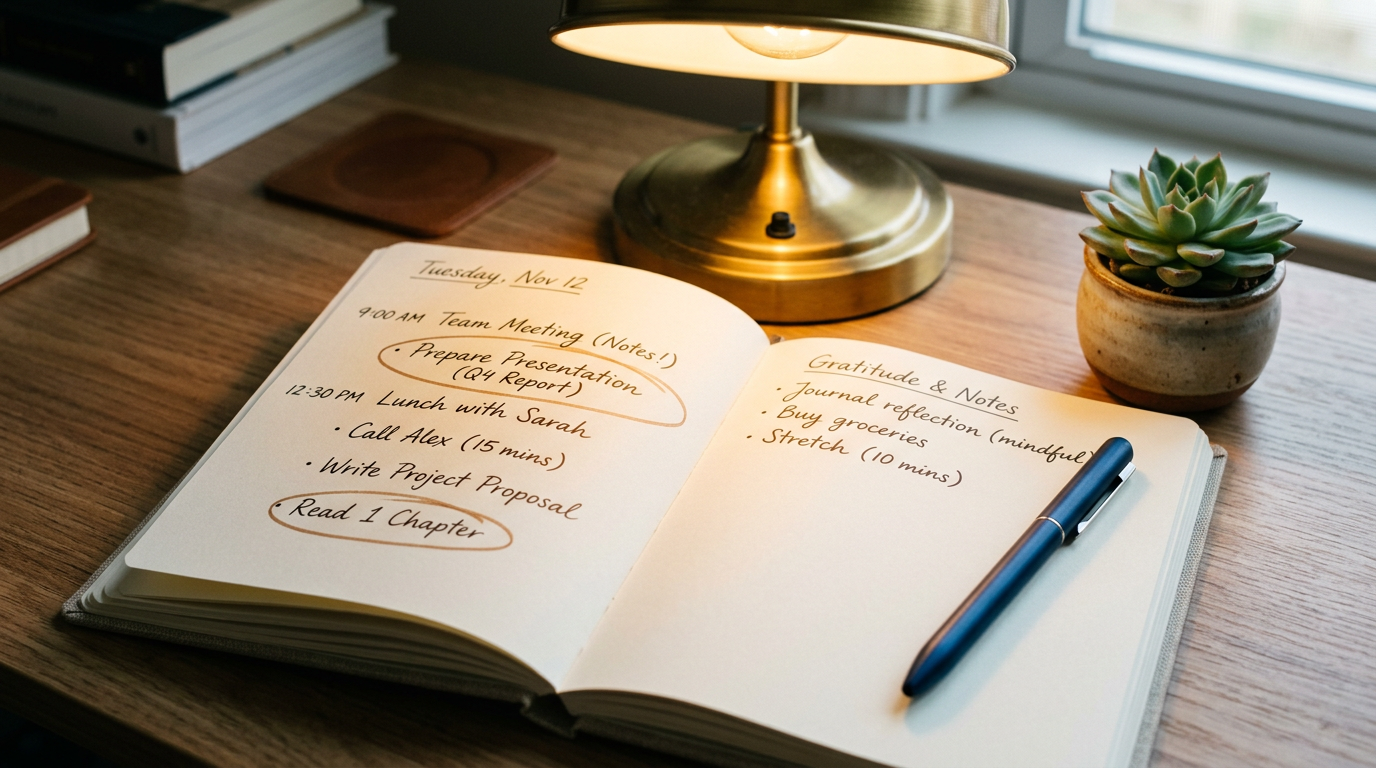 Tuesday, Nov 12
9:00 AM Team Meeting (Notes!)
• Prepare Presentation
(Q4 Report)
12:30 PM Lunch with Sarah
• Call Alex (15 mins)
• Write Project Proposal
• Read 1 Chapter
Gratitude & Notes
• Journal reflection (mindful)
• Buy groceries
• Stretch (10 mins)